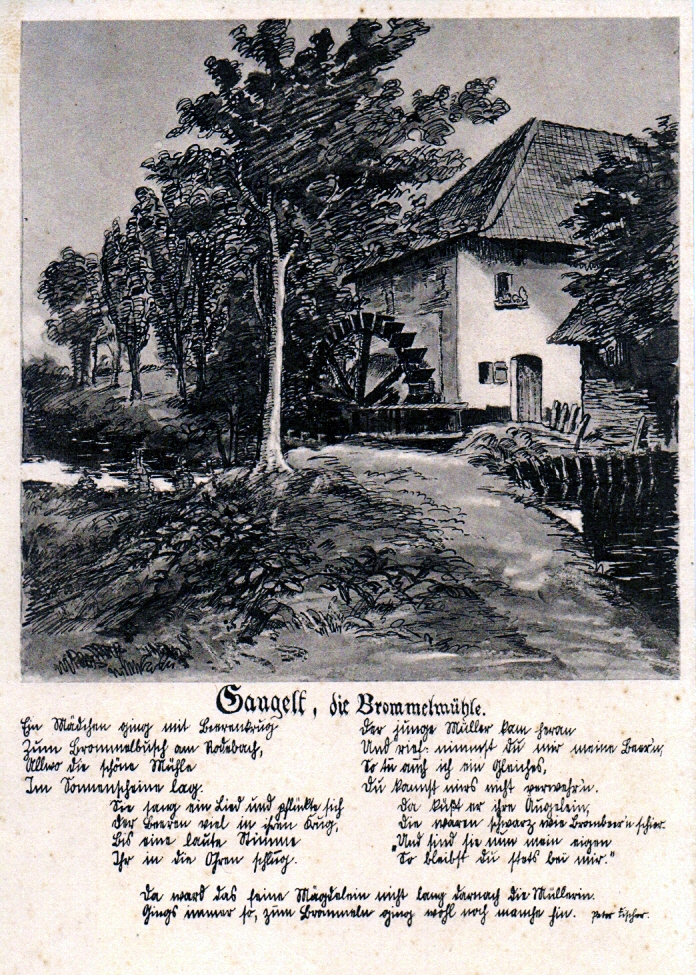 Gangelt, die Brommelmühle.
Ein Mädchen ging mit Beerenkrug
Zum Brommelbusch am Rodebach,
Allwo die schöne Mühle
Im Sonnenscheine lag.
Sie sang ein Lied und pflückte sich
Der Beeren viel in ihren Krug,
Bis eine laute Stimme
Ihr in die Ohren schlug.
Der junge Müller kam heran
Und rief: nimmst du mir meine Beer'n,
So tu auch ich ein Gleiches,
Du kannst mirs nicht verwehr'n.
Da küßt er ihre Äugelein,
Die waren schwarz wie Brombeer'n schier.
„Und sind sie nun mein eigen
So bleibst du stets bei mir."
Da ward das feine Mägdelein nicht lang darnach die Müllerin.
Gings immer so, zum Brommeln ging wohl noch manche hin. Peter Fischer.